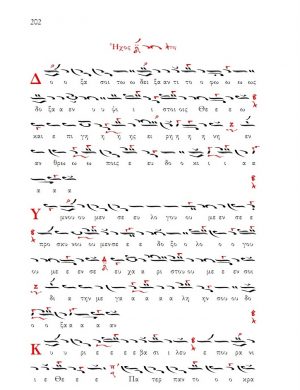 202
Ἦχος
Δ ο ο ξα σοι τω δει ξαν τι το ο φω ω ω ως
δο ξα α εν υ υ ψι ι ι στοι οις Θε ε ε ω
και ε πι γη η η ης ει ρη η η η νη εν
αν θρω ω ω ποις ε ευ δο κι ι ι α α
α α α
Υ μνου ου μεν σε ευ λο γου ου με εν σε ε ε
προ σκυ νου ου μεν σε ε ε δο ξο λο ο ο γου
ου με ε εν σε ε ευ χα α ρι στου ου με ε εν σοι
δι α την με γα α α α λη ην σου δο
ο ο ξα α α α αν
Κ υ υ ρι ε ε ε ε βα σι λευ ε που ρα νι
ι ε Θε ε ε Πα τερ παν το ο ο κρα